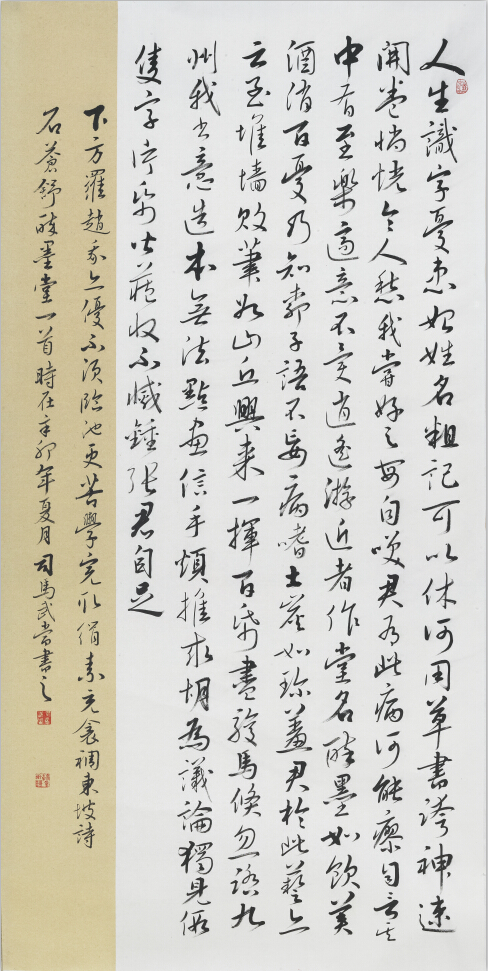 人生識字憂患始姓名粗記可以休何用草書誇神速
開卷惝恍令人愁我嘗好之每自笑君有此病何能瘳自言其
中有至樂適意不異逍遙游近者作堂名醉墨如飲美
酒消百憂乃知柳子語不妄病嗜土炭如珍羞君於此藝亦
云至堆墻敗筆如山丘興来一揮百帋盡駿馬倏忽踏九
州我書意造本無法點畫信手煩推求胡為議論獨見假
隻字片帋皆藏收不減鍾張君自足
下方羅趙我亦優不須臨池更苦學完取絹素充衾裯東坡詩
石蒼舒醉墨堂一首時在辛卯年夏月司馬武當書之